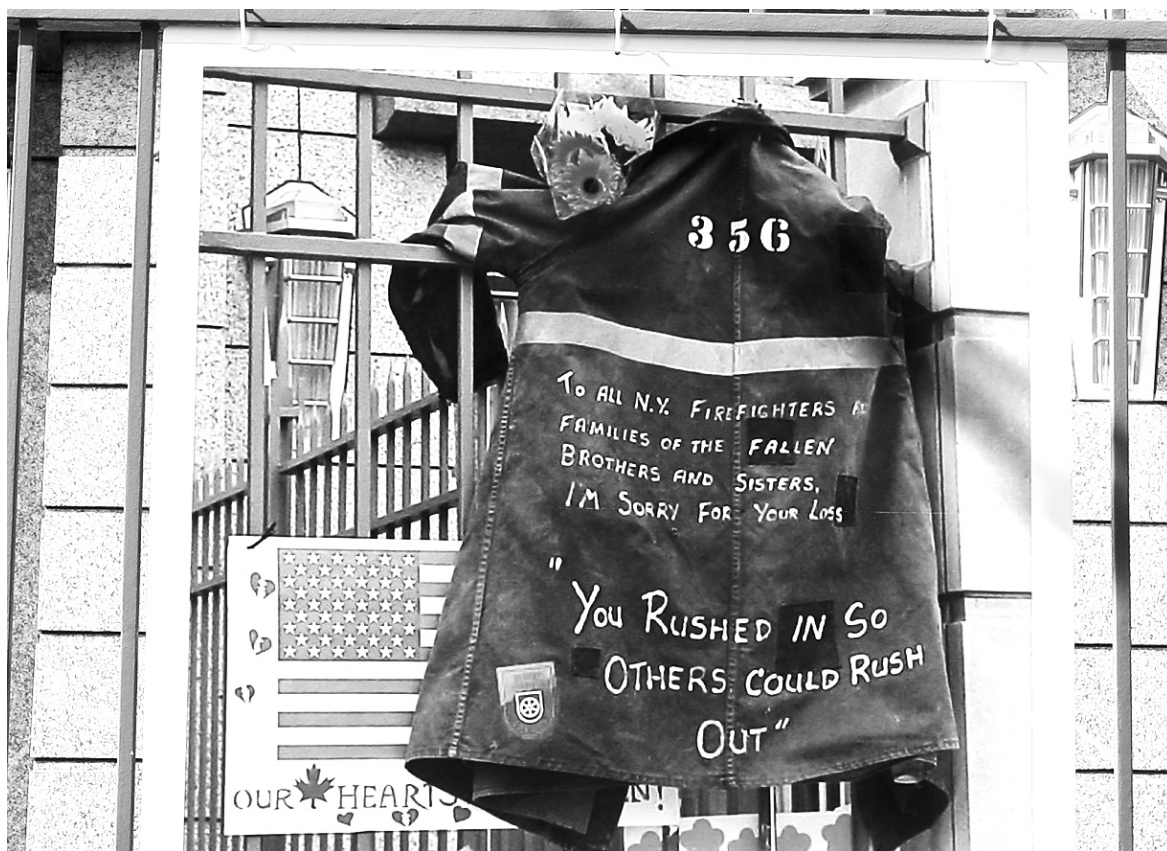 356
To ALL N.Y. FIREFIGHTERS
FAMILIES OF THE FALLEN
BROTHERS AND SISTERS,
I'M SORRY FOR YOUR LOSS
"YOU RUSHED IN SO
OTHERS COULD RUSH
OUT"
OUR HEARTS